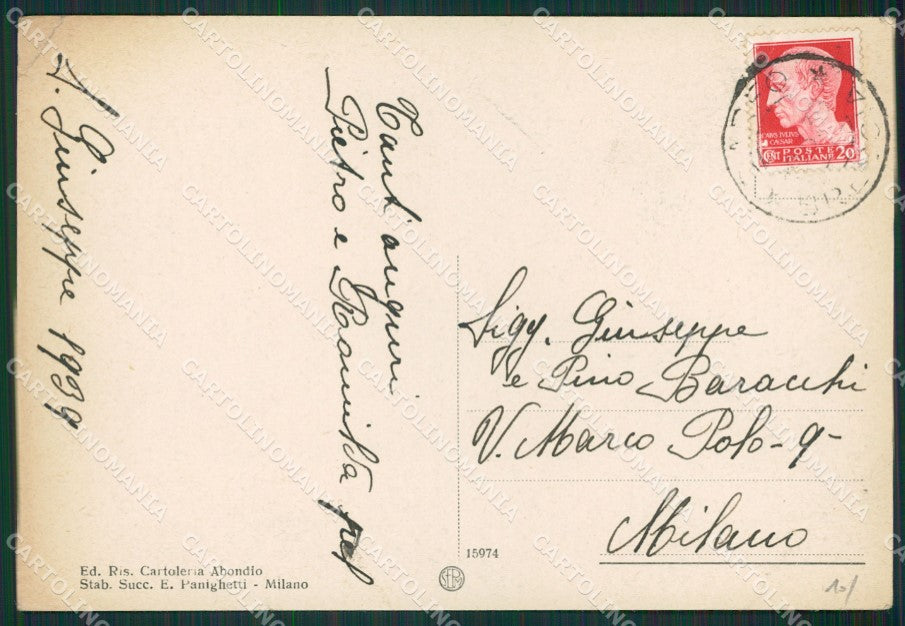 S. Giuseppe 1939
Tant'auguri
Pietro e Romilda
Sigg. Giuseppe
e Pino Baracchi
V. Marco Polo - 9 -
Milano
CAIVS IVLIVS
CAESAR
CENT POSTE
ITALIANE 20
15974
Ed. Ris. Cartoleria Abondio
Stab. Succ. E. Panighetti - Milano
CARTOLINOMANIA